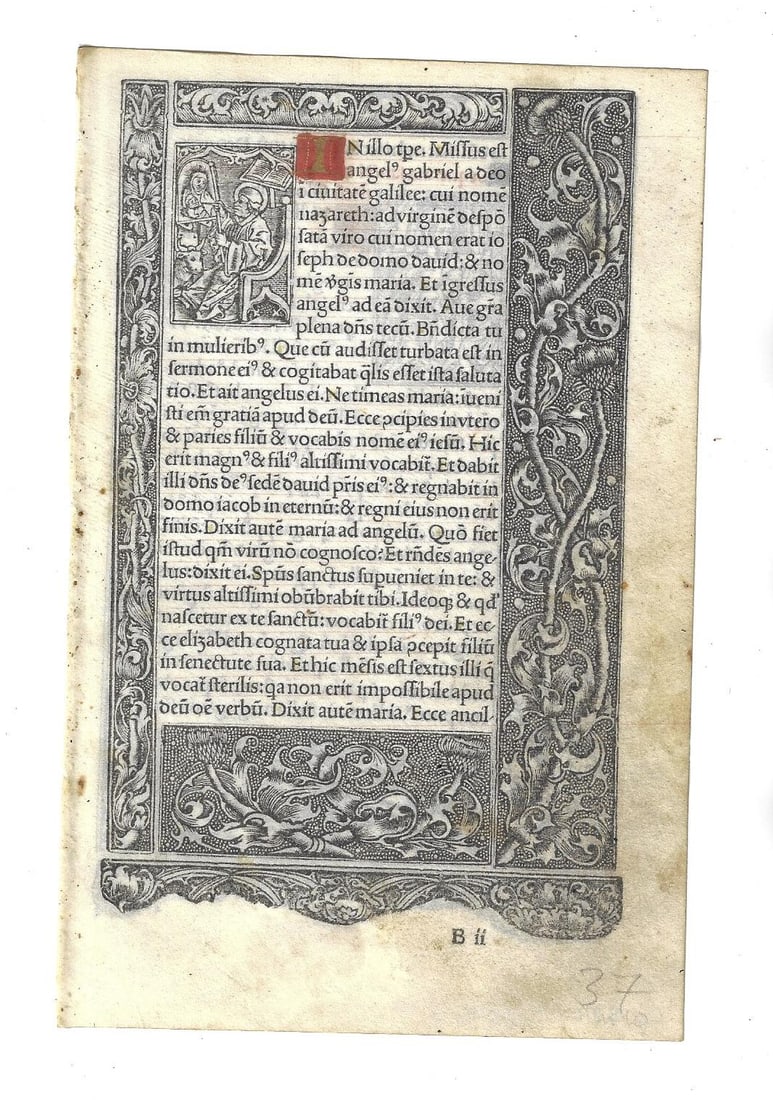 IN illo tp̄e. Missus est
angelꝰ gabriel a deo
ī ciuitatē galilee: cui nomē
nazareth: ad virginē despō
satā viro cui nomen erat io
seph de domo dauid: & no
mē v̾gīs maria. Et īgressus
angelꝰ ad eā dixit. Aue gr̄a
plena dn̄s tecū. Bn̄dicta tu
in mulieribꝰ. Que cū audisset turbata est in
sermone eiꝰ & cogitabat q̄lis esset ista saluta
tio. Et ait angelus ei. Ne timeas maria: īueni
sti em̄ gratiā apud deū. Ecce ↄcipies in vtero
& paries filiū & vocabis nomē eiꝰ iesū. Hic
erit magnꝰ & filiꝰ altissimi vocabit̄. Et dabit
illi dn̄s deꝰ sedē dauid pr̄is eiꝰ: & regnabit in
domo iacob in eternū: & regni eius non erit
finis. Dixit autē maria ad angelū. Quō fiet
istud qm̄ virū nō cognosco? Et rn̄dēs ange-
lus: dixit ei. Spūs sanctus supueniet in te: &
virtus altissimi obūbrabit tibi. Ideoqꝫ & qd'
nascetur ex te sanctū: vocabit̄ filiꝰ dei. Et ec-
ce elizabeth cognata tua & ipsa ↄcepit filiū
in senectute sua. Et hic mēsis est sextus illi q̄
vocat̄ sterilis: qa non erit impossibile apud
deū oē verbū. Dixit autē maria. Ecce ancil-
B ii
37